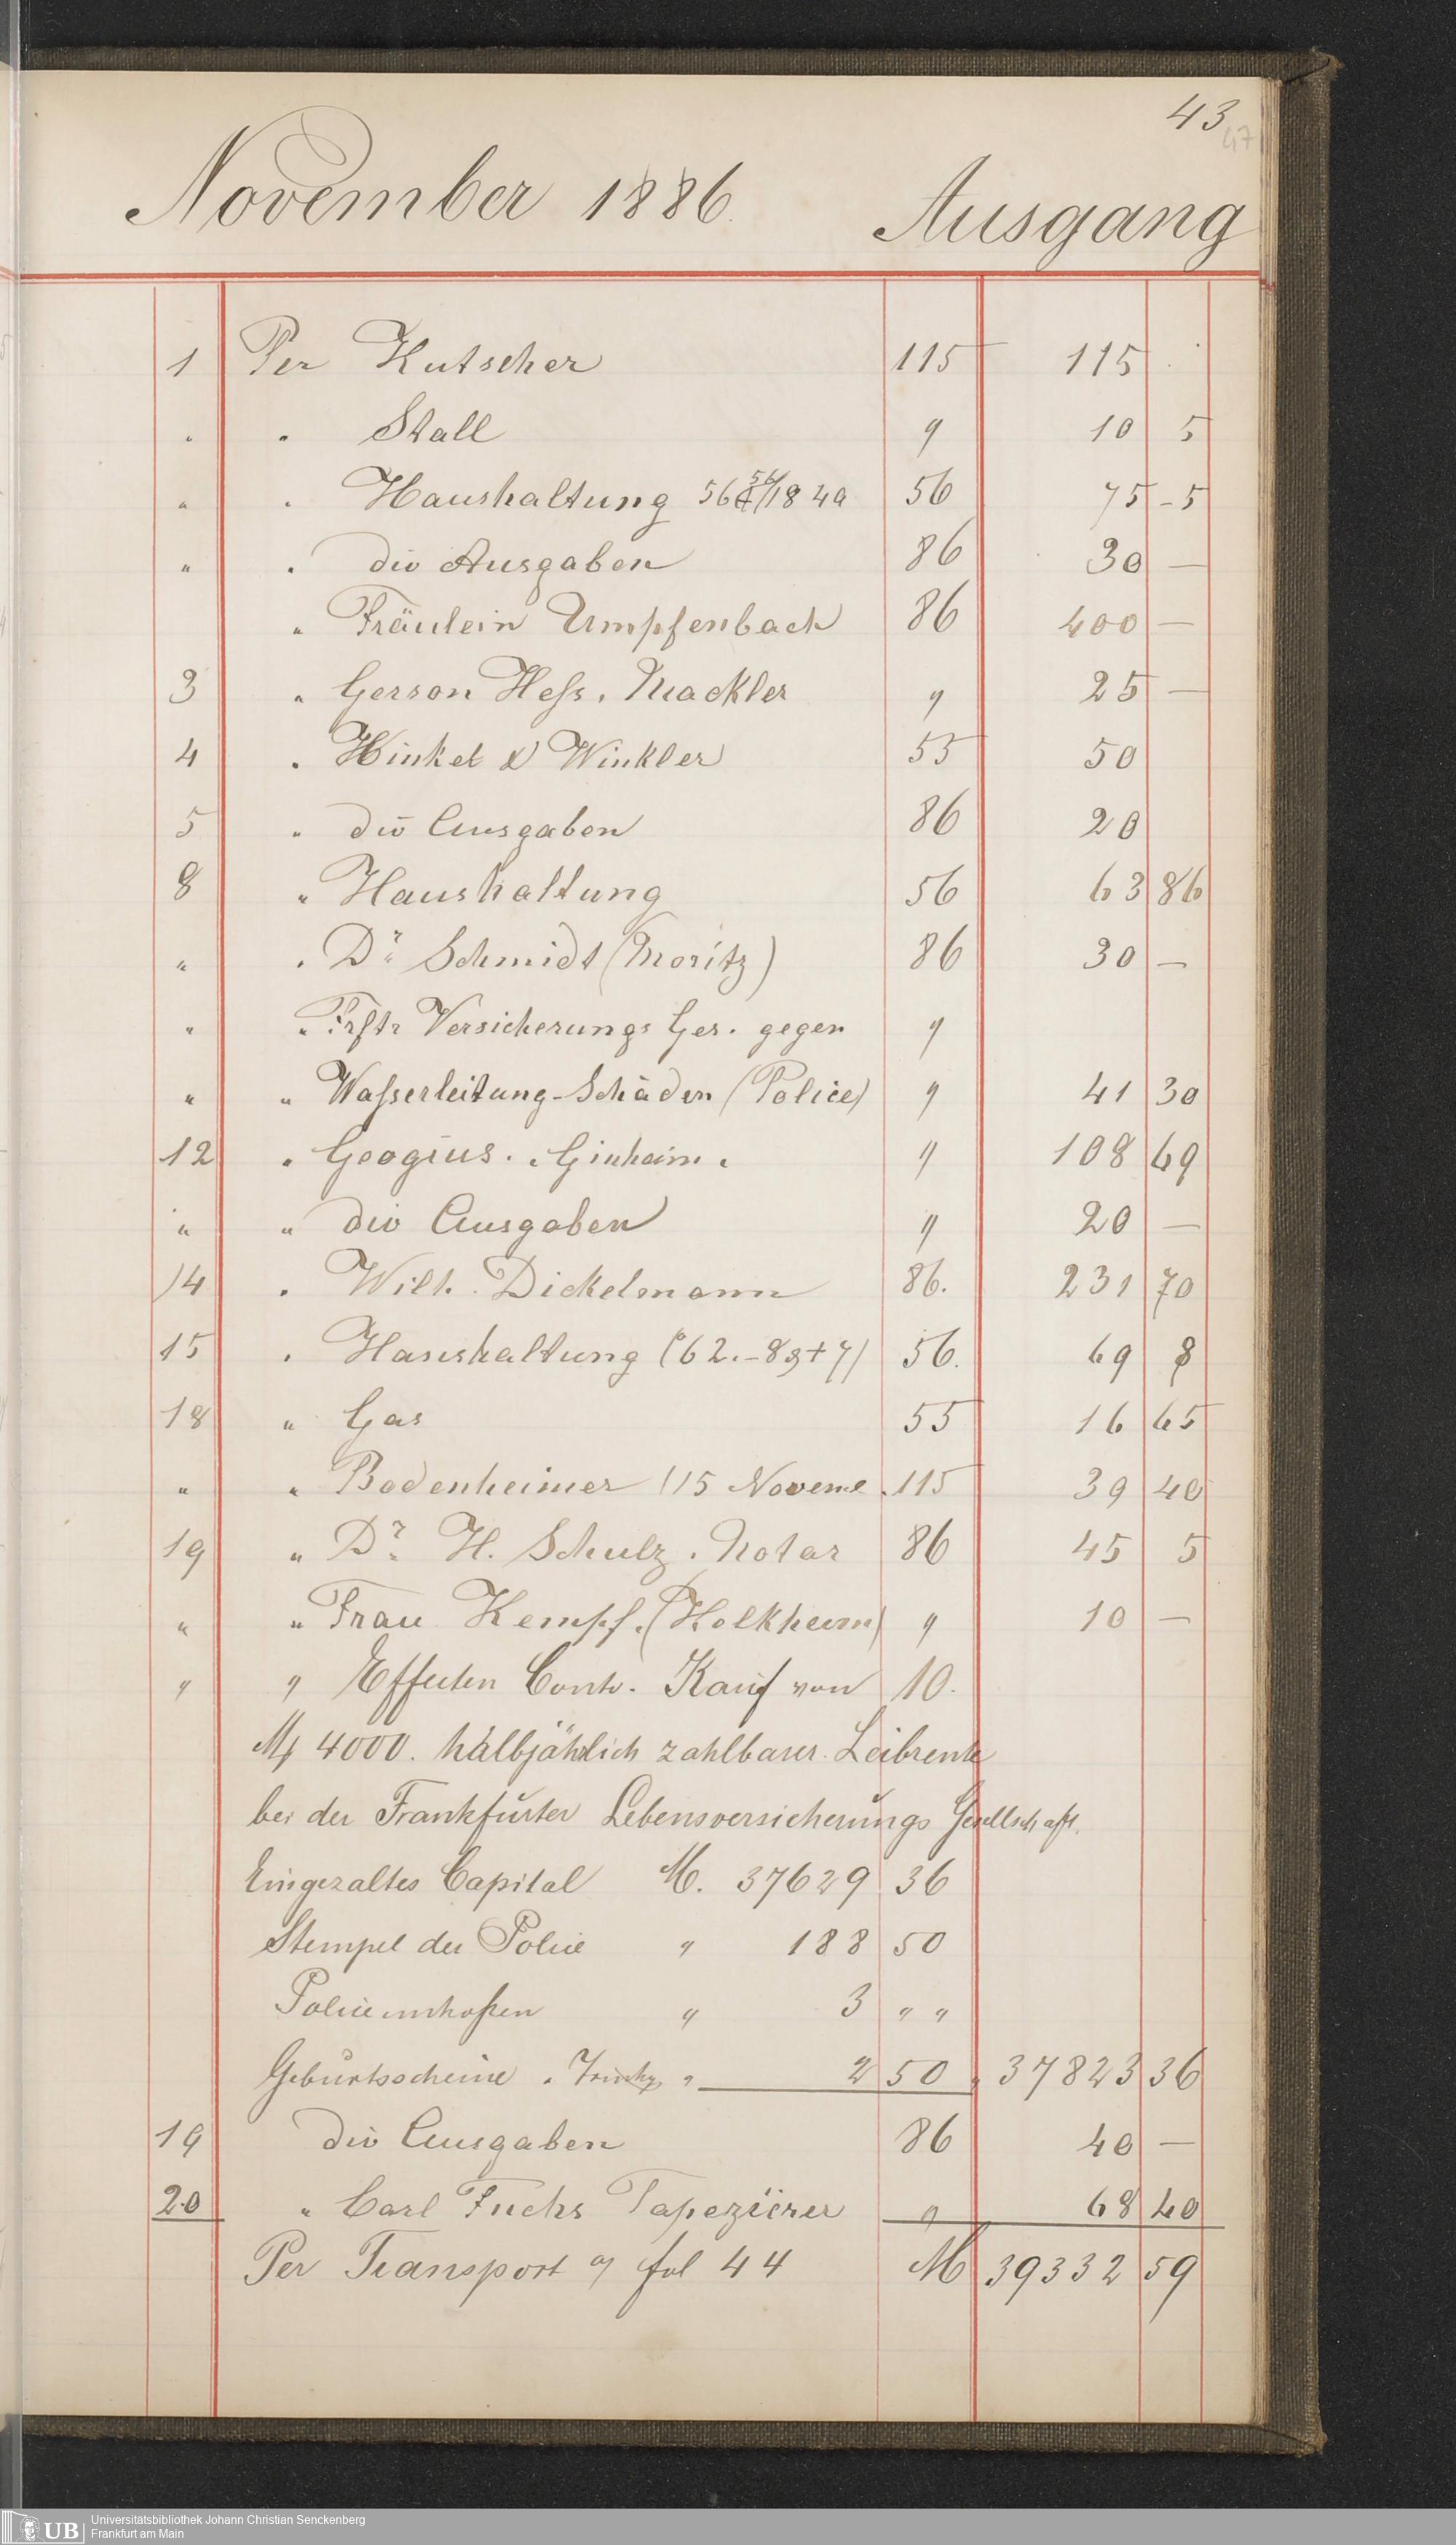 43
47
November 1886. Ausgang
1 Per Kutscher 115 115
" " Stall " 10 5
" " Haushaltung 56 18 49 56 75 - 5
" " div Ausgaben 86 30 —
" Fräulein Umpfenbach 86 400 —
3 " Gerson Heß. Mackler " 25 —
4 " Hinkel & Winkler 55 50
5 " div Ausgaben 86 20
8 " Haushaltung 56 63 86
" " Dr Schmidt (Moritz) 86 30 —
" " Frftr Versicherungs Ges. gegen "
" " Waßerleitung-Schäden (Police) " 41 30
12 " Geogius. Ginheim. " 108 69
" " div Ausgaben " 20 —
14 " Wilh. Dickelmann 86. 231 70
15 " Haushaltung (62.-83+7) 56. 69 8
18 " Gas 55 16 65
" " Bodenheimer (15 Noveme 115 39 40
19 " Dr H. Schulz. Notar 86 45 5
" " Frau Kempf. (Holkheim) " 10 —
" " Effecten Conto. Kauf von 10.
M 4000. halbjährlich zahlbarer Leibrente
bei der Frankfurter Lebensversicherungs Gesellschaft.
Eingezaltes Capital M. 37629 36
Stempel der Police " 188 50
Policeunkosten " 3 " "
Geburtsscheine. " 2 50 " 37823 36
19 div Ausgaben 86 40 —
20 " Carl Fuchs Tapezierer " 68 40
Per Transport a/ fol 44 M 39332 59
UB
Universitätsbibliothek Johann Christian Senckenberg
Frankfurt am Main